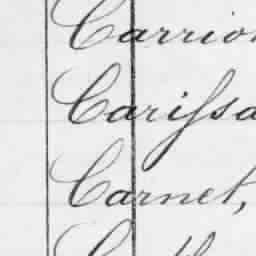 Carrion
Carissa
Carnet,